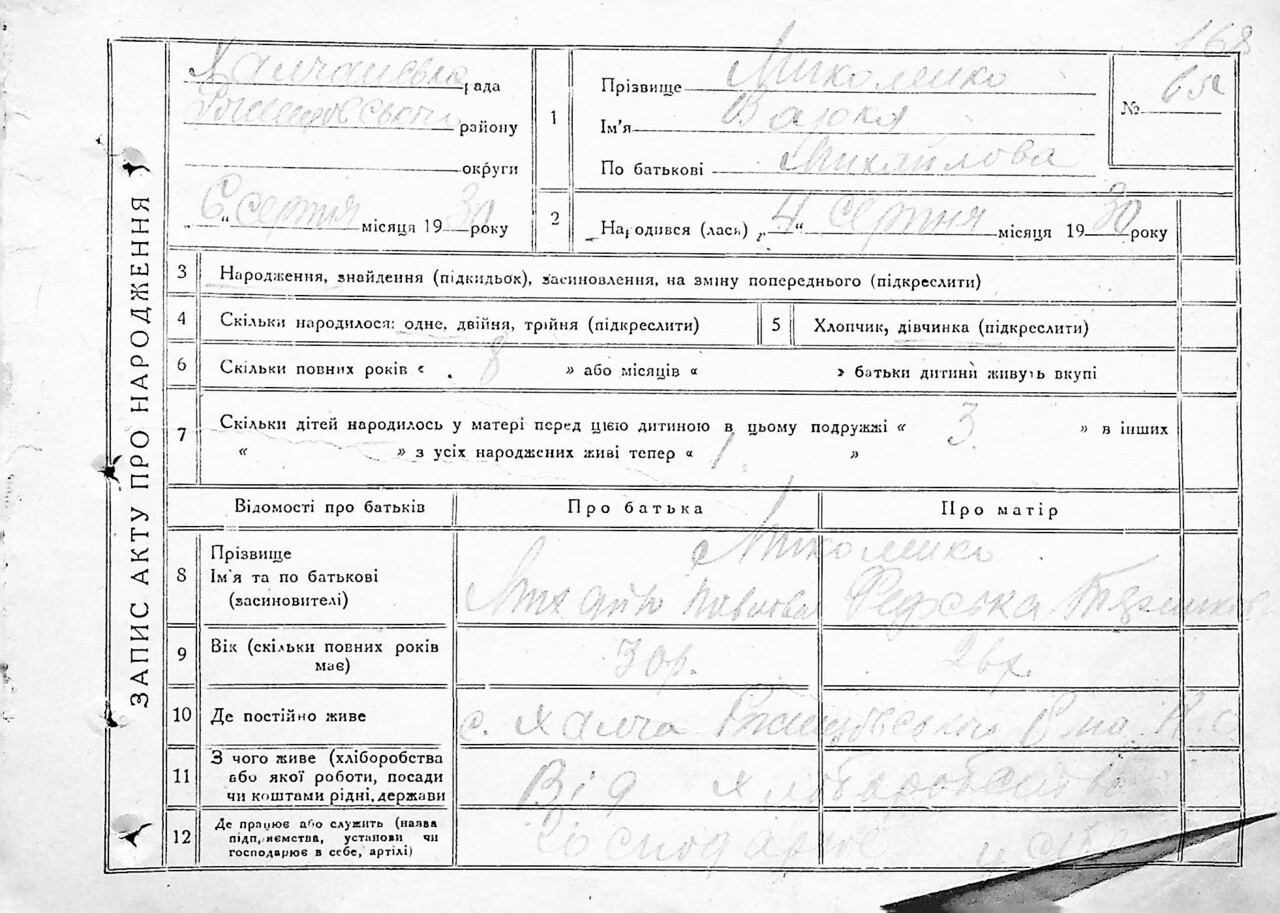 168
ЗАПИС АКТУ ПРО НАРОДЖЕННЯ
Халчанська рада
Ржищівського району
округи
„6“ серпня місяця 1930 року
1
Прізвище
Ім'я
По батькові Михайлова
№ 65
2
Народився (лась) „4“ серпня місяця 1930 року
3 Народження, знайдення (підкидьок), засиновлення, на зміну попереднього (підкреслити)
4 Скільки народилося: одне, двійня, трійня (підкреслити)
5 Хлопчик, дівчинка (підкреслити)
6 Скільки повних років « 8 » або місяців « » батьки дитини живуть вкупі
7 Скільки дітей народилось у матері перед цією дитиною в цьому подружжі « 3 » в інших
« » з усіх народжених живі тепер « 1 »
Відомості про батьків Про батька Про матір
8 Прізвище
Ім'я та по батькові
(засиновителі)
Михайло Павлович
9 Вік (скільки повних років має)
30 р. 28 р.
10 Де постійно живе с. Халча Ржищівського
11 З чого живе (хліборобства
або якої роботи, посади
чи коштами рідні, держави
Від хліборобства
12 Де працює або служить (назва
підприємства, установи чи
господарює в себе, артілі)
Господарює у себе